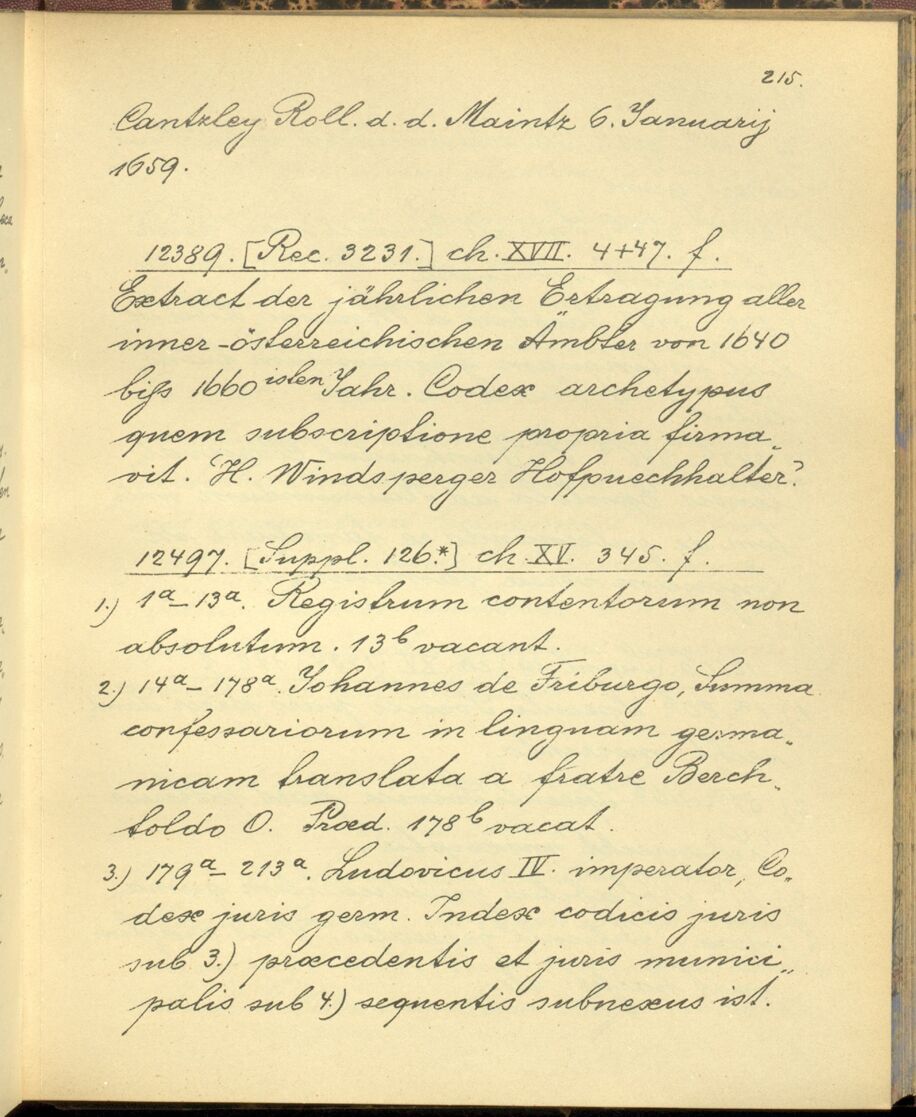 215.
Cantzley Roll. d. d. Maintz 6. Januarij
1659.
12389. [Rec. 3231.] ch. XVII. 4+47. f.
Extract der jährlichen Ertragung aller
inner-österreichischen Ämbter von 1640
biſs 1660isten Jahr. Codex archetypus
quem subscriptione propria firma„
vit. ‘H. Windsperger Hofpuechhalter’.
12497. [Suppl. 126.*] ch. XV. 345. f.
1.) 1a– 13a. Registrum contentorum non
absolutum. 13b vacant.
2.) 14a– 178a. Johannes de Friburgo, Summa
confessariorum in linguam germa„
nicam translata a fratre Berch„
toldo O. Præd. 178b vacat.
3.) 179a– 213a. Ludovicus IV. imperator, Co„
dex juris germ. Index codicis juris
sub 3.) præcedentis et juris munici„
palis sub 4.) sequentis subnexus ist.